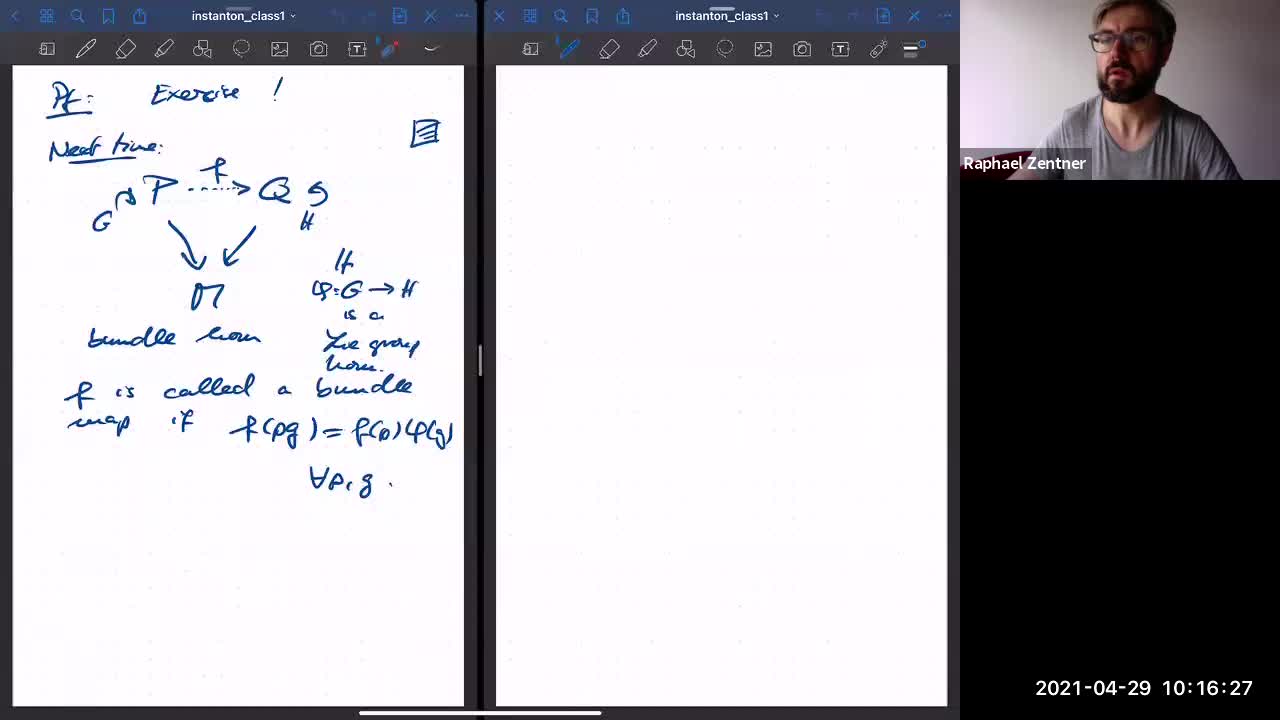 instanton_class1
instanton_class1
Pf: Exercise !
Next time:
P f Q
G H
M
If
φ: G → H
is a
bundle hom Lie group
hom.
f is called a bundle
map if f(pg) = f(p)φ(g)
∀p, g .
Raphael Zentner
2021-04-29 10:16:27